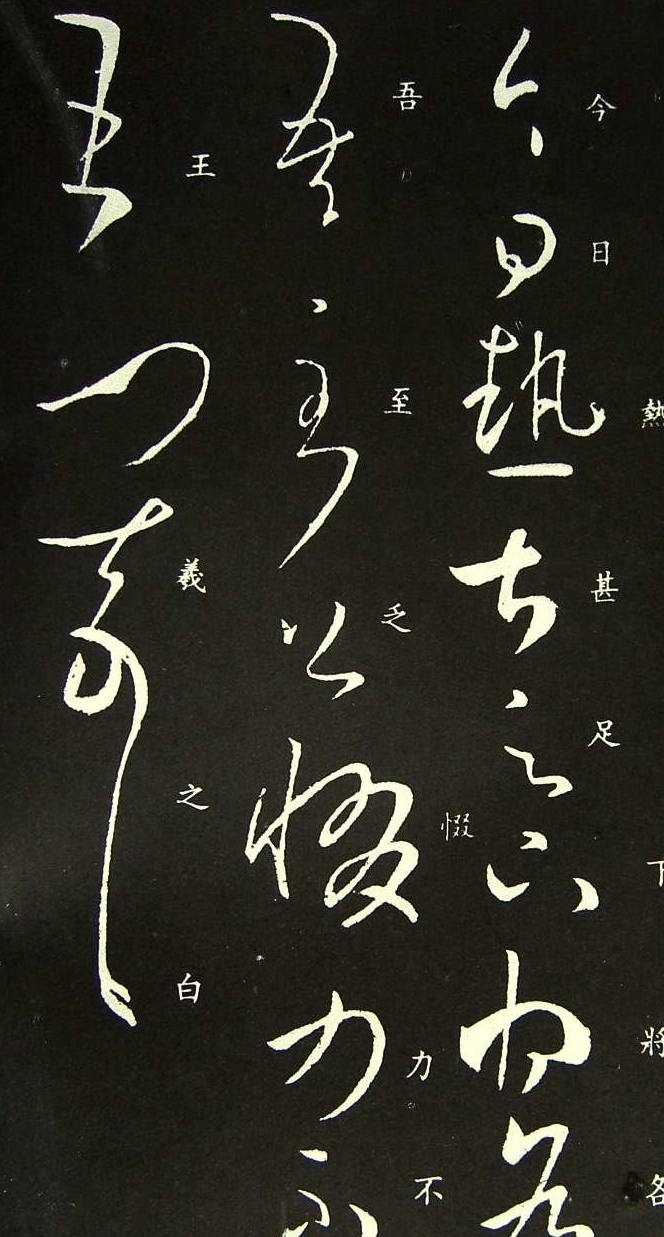 今日熱甚足下將各
吾至乏惙力不
王羲之白